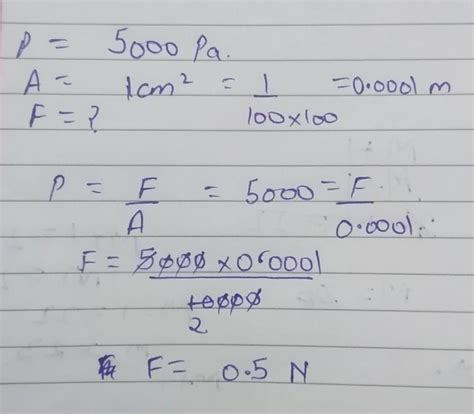 P = 5000 Pa.
A = 1cm² = 1/100×100 = 0.0001 m
F = ?
P = F/A = 5000 = F/0.0001.
F = 5000 × 0.0001
10000
2
F = 0.5 N